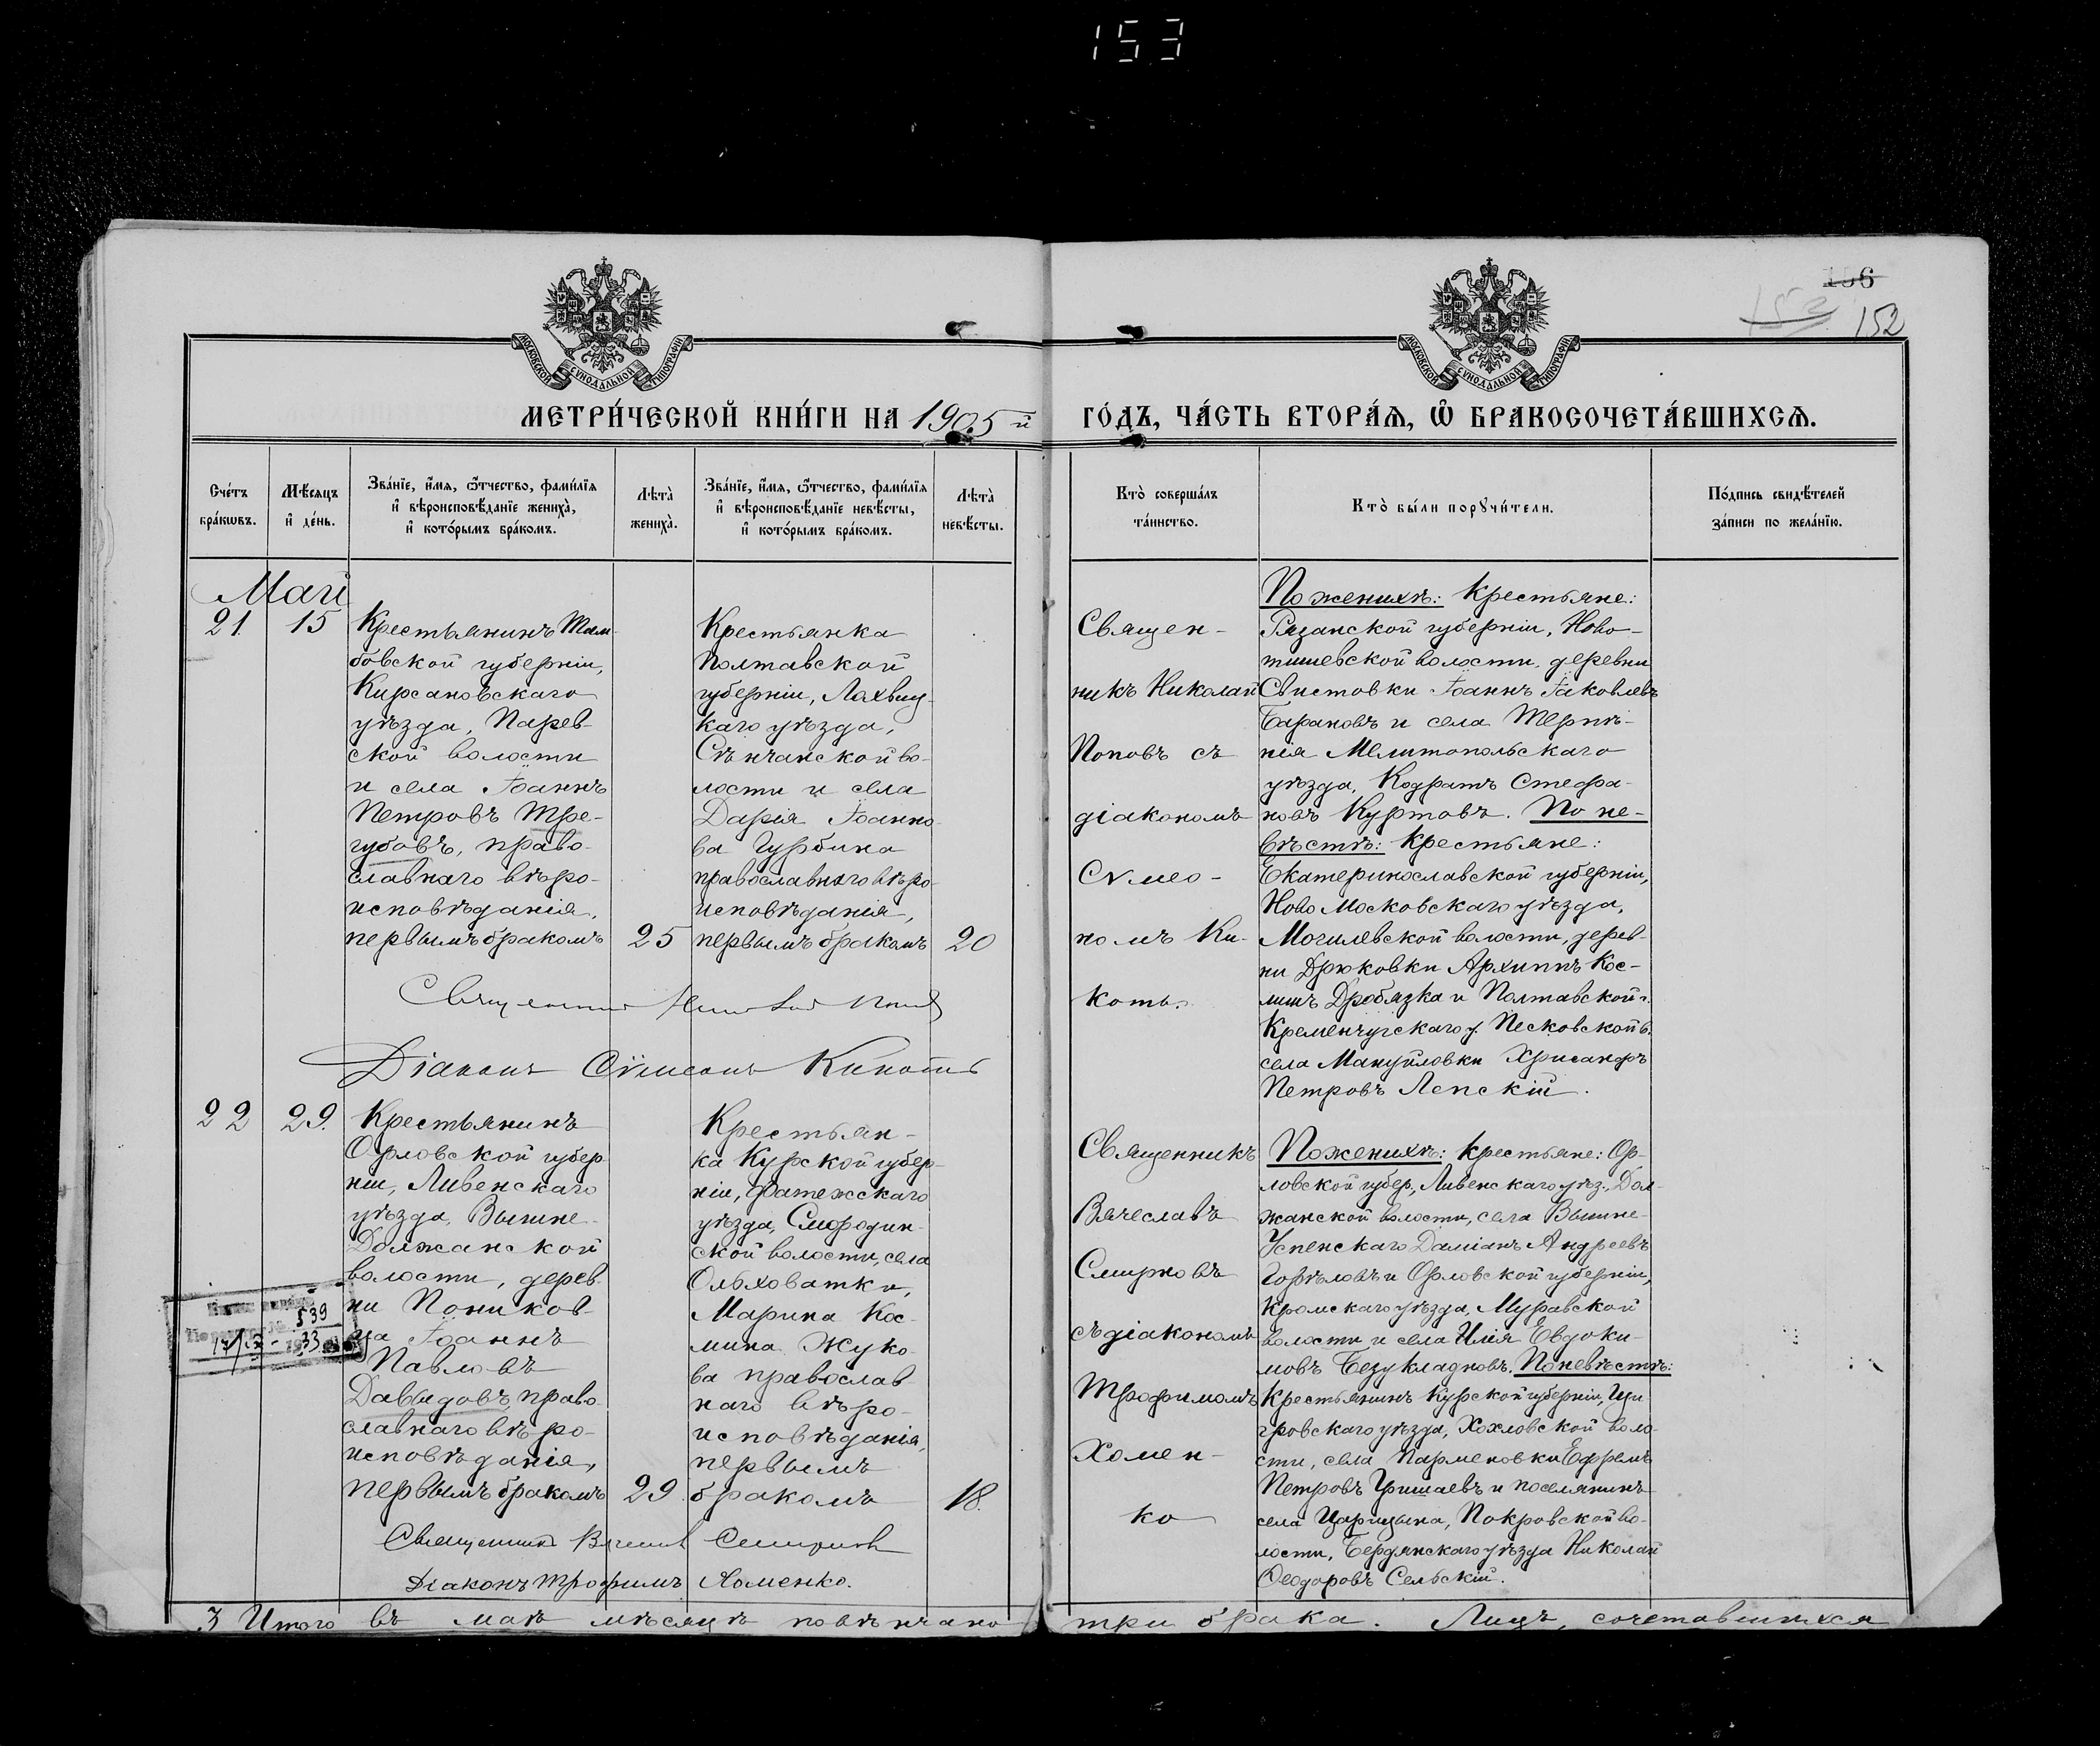 153
156
152
МОСКОВСКОЙ СѴНОДАЛЬНОЙ ТИПОГРАФІИ
МОСКОВСКОЙ СѴНОДАЛЬНОЙ ТИПОГРАФІИ
МЕТРИ́ЧЕСКОЙ КНИ́ГИ НА 1905-й
ГО́ДЪ, ЧА́СТЬ ВТОРА́Ѧ, Ѽ БРАКОСОЧЕТА́ВШИХСѦ.
Сче́тъ бра́кѡвъ.
Мѣ́сѧцъ и҆ де́нь.
Зва́нїе, и҆́мѧ, ѻ҆́тчество, фами́лїѧ
и҆ вѣроисповѣ́данїе жениха̀,
и҆ кото́рымъ бра́комъ.
Лѣта̀ жениха̀.
Зва́нїе, и҆́мѧ, ѻ҆́тчество, фами́лїѧ
и҆ вѣроисповѣ́данїе невѣ́сты,
и҆ кото́рымъ бра́комъ.
Лѣта̀ невѣ́сты.
Кто̀ соверша́лъ та́инство.
Кто̀ бы́ли порꙋчи́тели.
По́дпись свидѣ́телей за́писи по жела́нїю.
Май
21. 15
Крестьянинъ Там-
бовской губерніи,
Кирсановскаго
уѣзда, Парев-
ской волости
и села Іоаннъ
Петровъ Тре-
губовъ, право-
славнаго вѣро-
исповѣданія,
первымъ бракомъ
25
Крестьянка
Полтавской
губерніи, Лохвиц-
каго уѣзда,
Сѣнчанской во-
лости и села
Дарія Іоанно-
ва Гурбина
православнаго вѣро-
исповѣданія,
первымъ бракомъ
20
Священ-
никъ Николай
Поповъ съ
діакономъ
Сѵмео-
номъ Ки-
коть.
По женихѣ: крестьяне:
Рязанской губерніи, Ново-
тишевской волости, деревни
Свистовки Іоаннъ Іаковлевъ
Барановъ и села Терпѣ-
нія Мелитопольскаго
уѣзда, Кодратъ Стефа-
новъ Куртовъ. По не-
вѣстѣ: крестьяне:
Екатеринославской губерніи,
Ново Московскаго уѣзда,
Могилевской волости, дерев-
ни Дрюковки Архиппъ Кос-
минъ Дробязка и Полтавской г.
Кременчугскаго у. Песковской в.
села Мануйловки Хрисанфъ
Петровъ Лепскій.
Священникъ Николай Поповъ
Діаконъ Сѵмеонъ Кикоть
22 29.
Крестьянинъ
Орловской губер-
ніи, Ливенскаго
уѣзда, Вышне-
Должанской
волости, дерев-
ни Поников-
ца Іоаннъ
Павловъ
Давыдовъ, право-
славнаго вѣро-
исповѣданія,
первымъ бракомъ
29.
Крестьян-
ка Курской губер-
ніи, Фатежскаго
уѣзда, Смородин-
ской волости, села
Ольховатки,
Марина Кос-
мина Жуко-
ва православ-
наго вѣро-
исповѣданія,
первымъ
бракомъ
18.
Священникъ
Вячеславъ
Смирновъ
съ діакономъ
Трофимомъ
Хомен-
ко
По женихѣ: крестьяне: Ор-
ловской губер., Ливенскаго уѣз., Дол-
жанской волости, села Вышне-
Успенскаго Даміанъ Андреевъ
Горѣловъ и Орловской губерніи,
Кромскаго уѣзда, Муравской
волости и села Илія Евдоки-
мовъ Безукладновъ. По невѣстѣ:
Крестьянинъ Курской губерніи, Щи-
гровскаго уѣзда, Хохловской воло-
сти, села Пармековки Ефремъ
Петровъ Гришаевъ и поселянинъ
села Царицына, Покровской во-
лости, Бердянскаго уѣзда Николай
Ѳеодоровъ Сельскій.
539
33
Священникъ Вячеславъ Смирновъ
Діаконъ Трофимъ Хоменко.
3 Итого въ маѣ мѣсяцѣ повѣнчано три брака. Лицъ, сочетавшихся